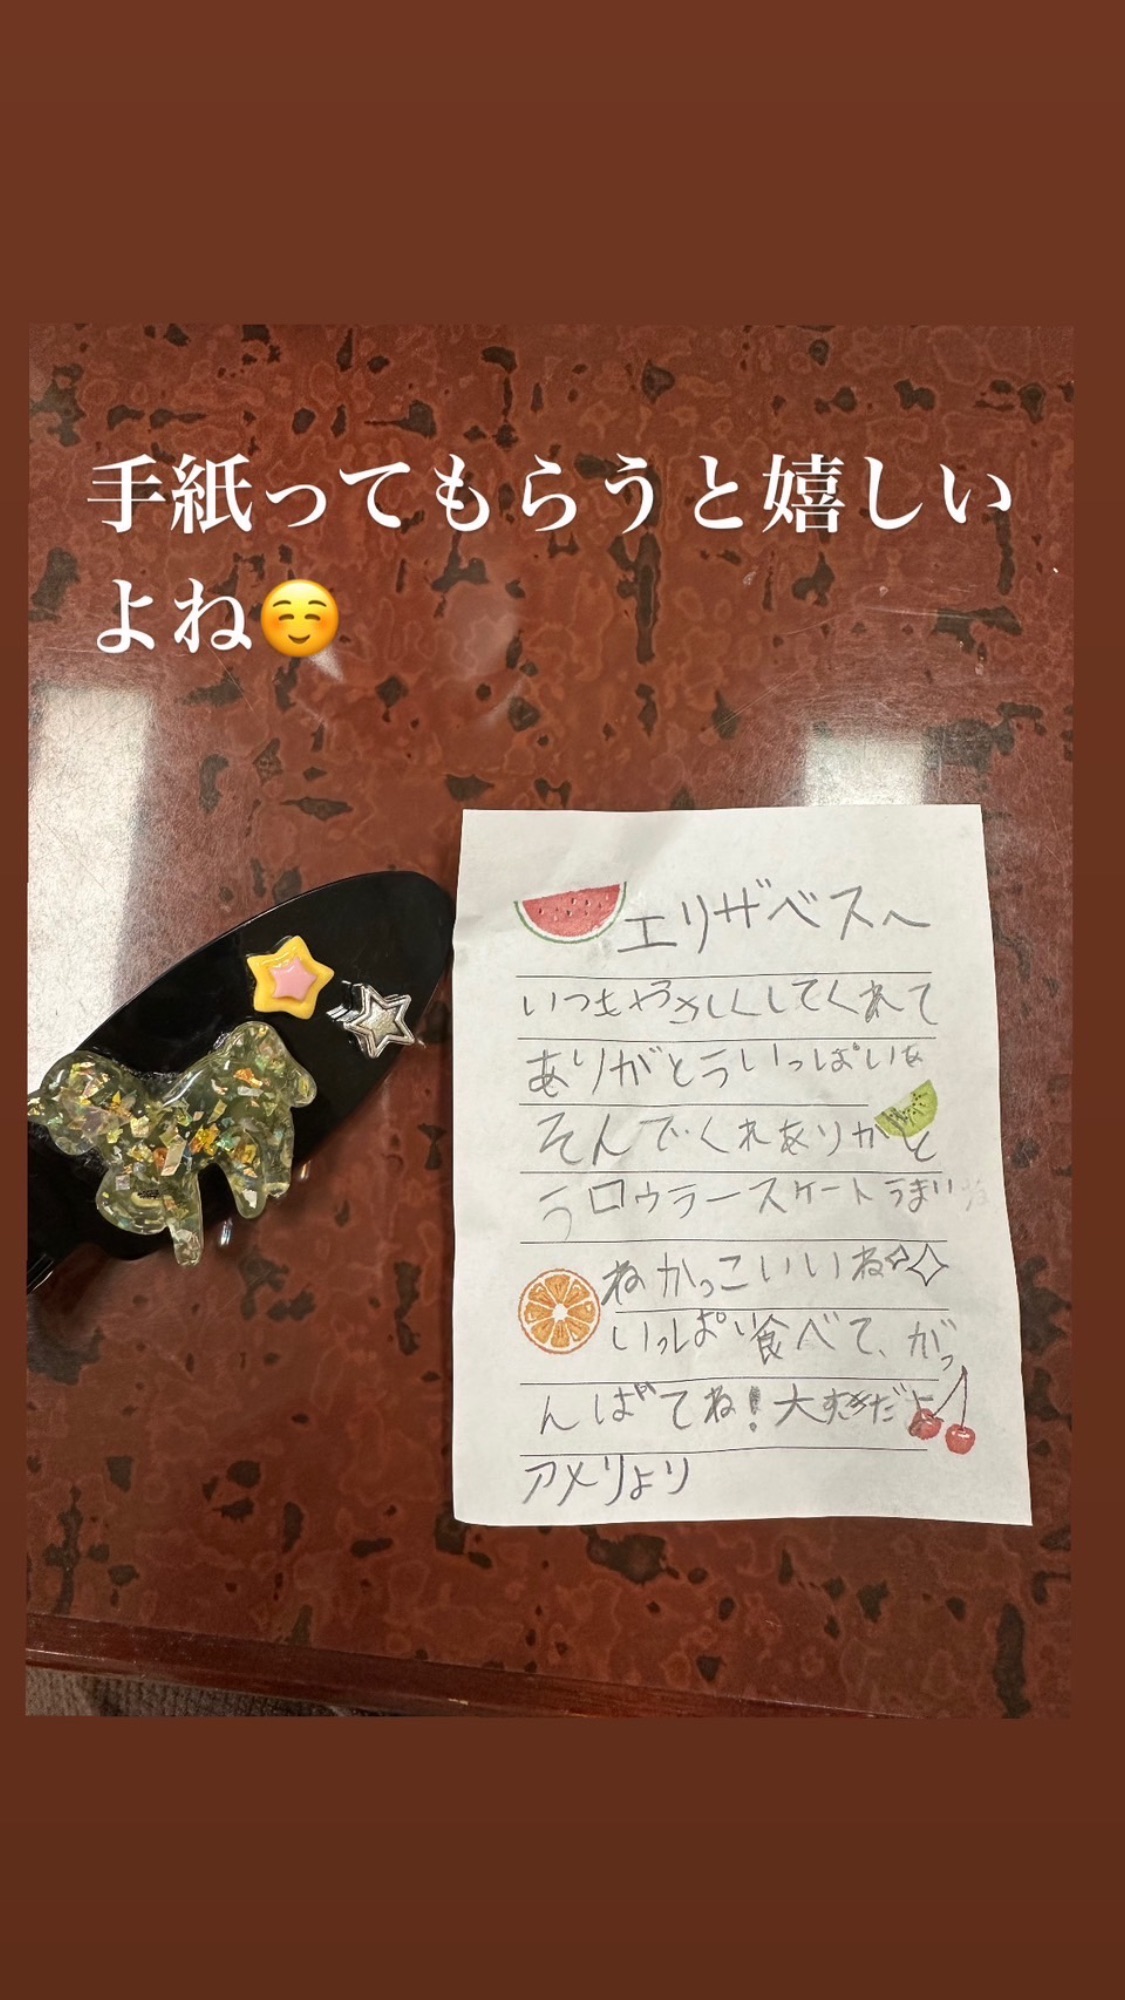 手紙ってもらうと嬉しい
よね☺️
エリザベスへ
いつもやさしくしてくれて
ありがとういっぱいあ
そんでくれありがと
うロウラースケートうまい
ねかっこいいね✧✧
いっぱい食べて、がっ
んばてね!大すきだよ
アメリより